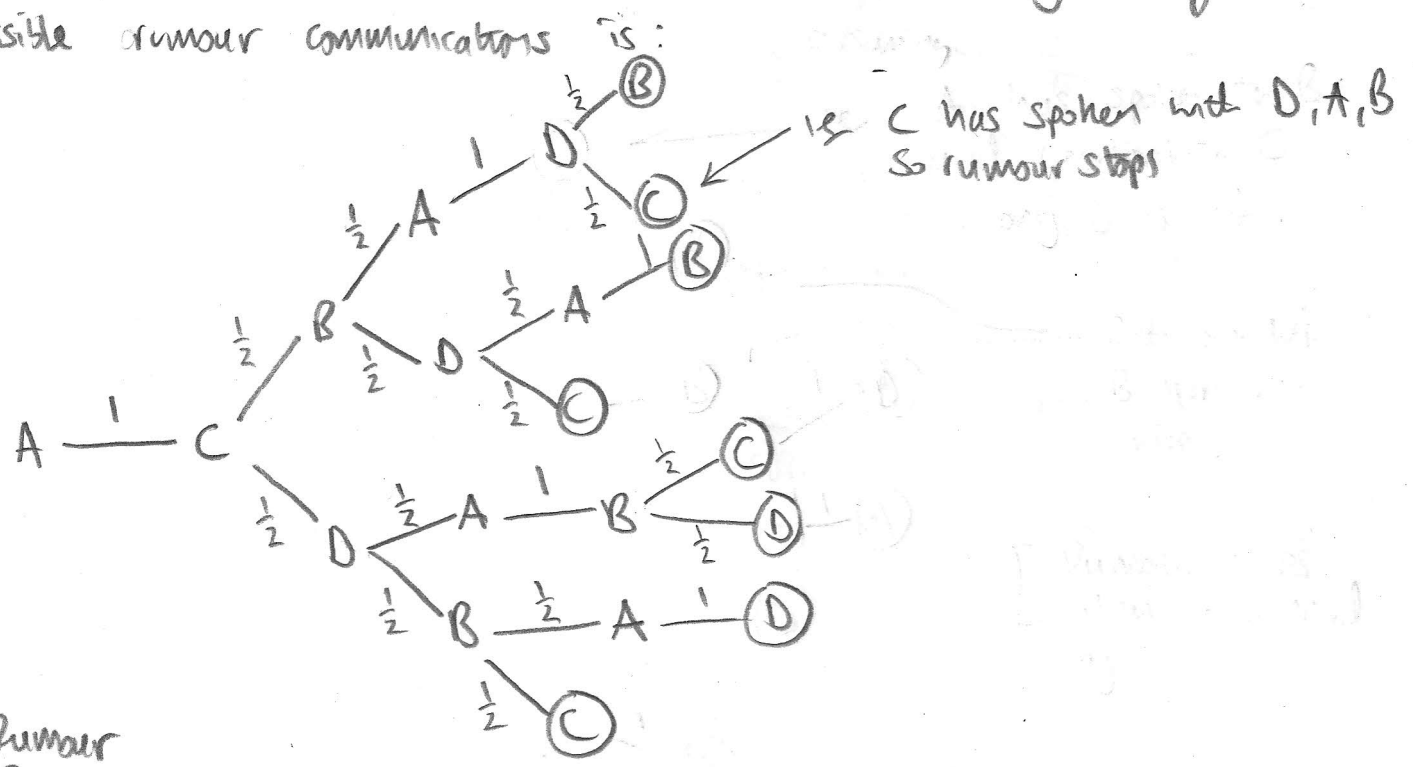 sible rumour communications is:
1/2 B
1 D
ie C has spoken with D, A, B
so rumour stops
1/2 A 1/2 C
1 B
1/2 A
1/2 B
1/2 D
1/2 C
A 1 C
1/2 C
1/2 A 1 B
1/2 D
1/2 D
1/2 B 1/2 A 1 D
1/2 C
Rumour